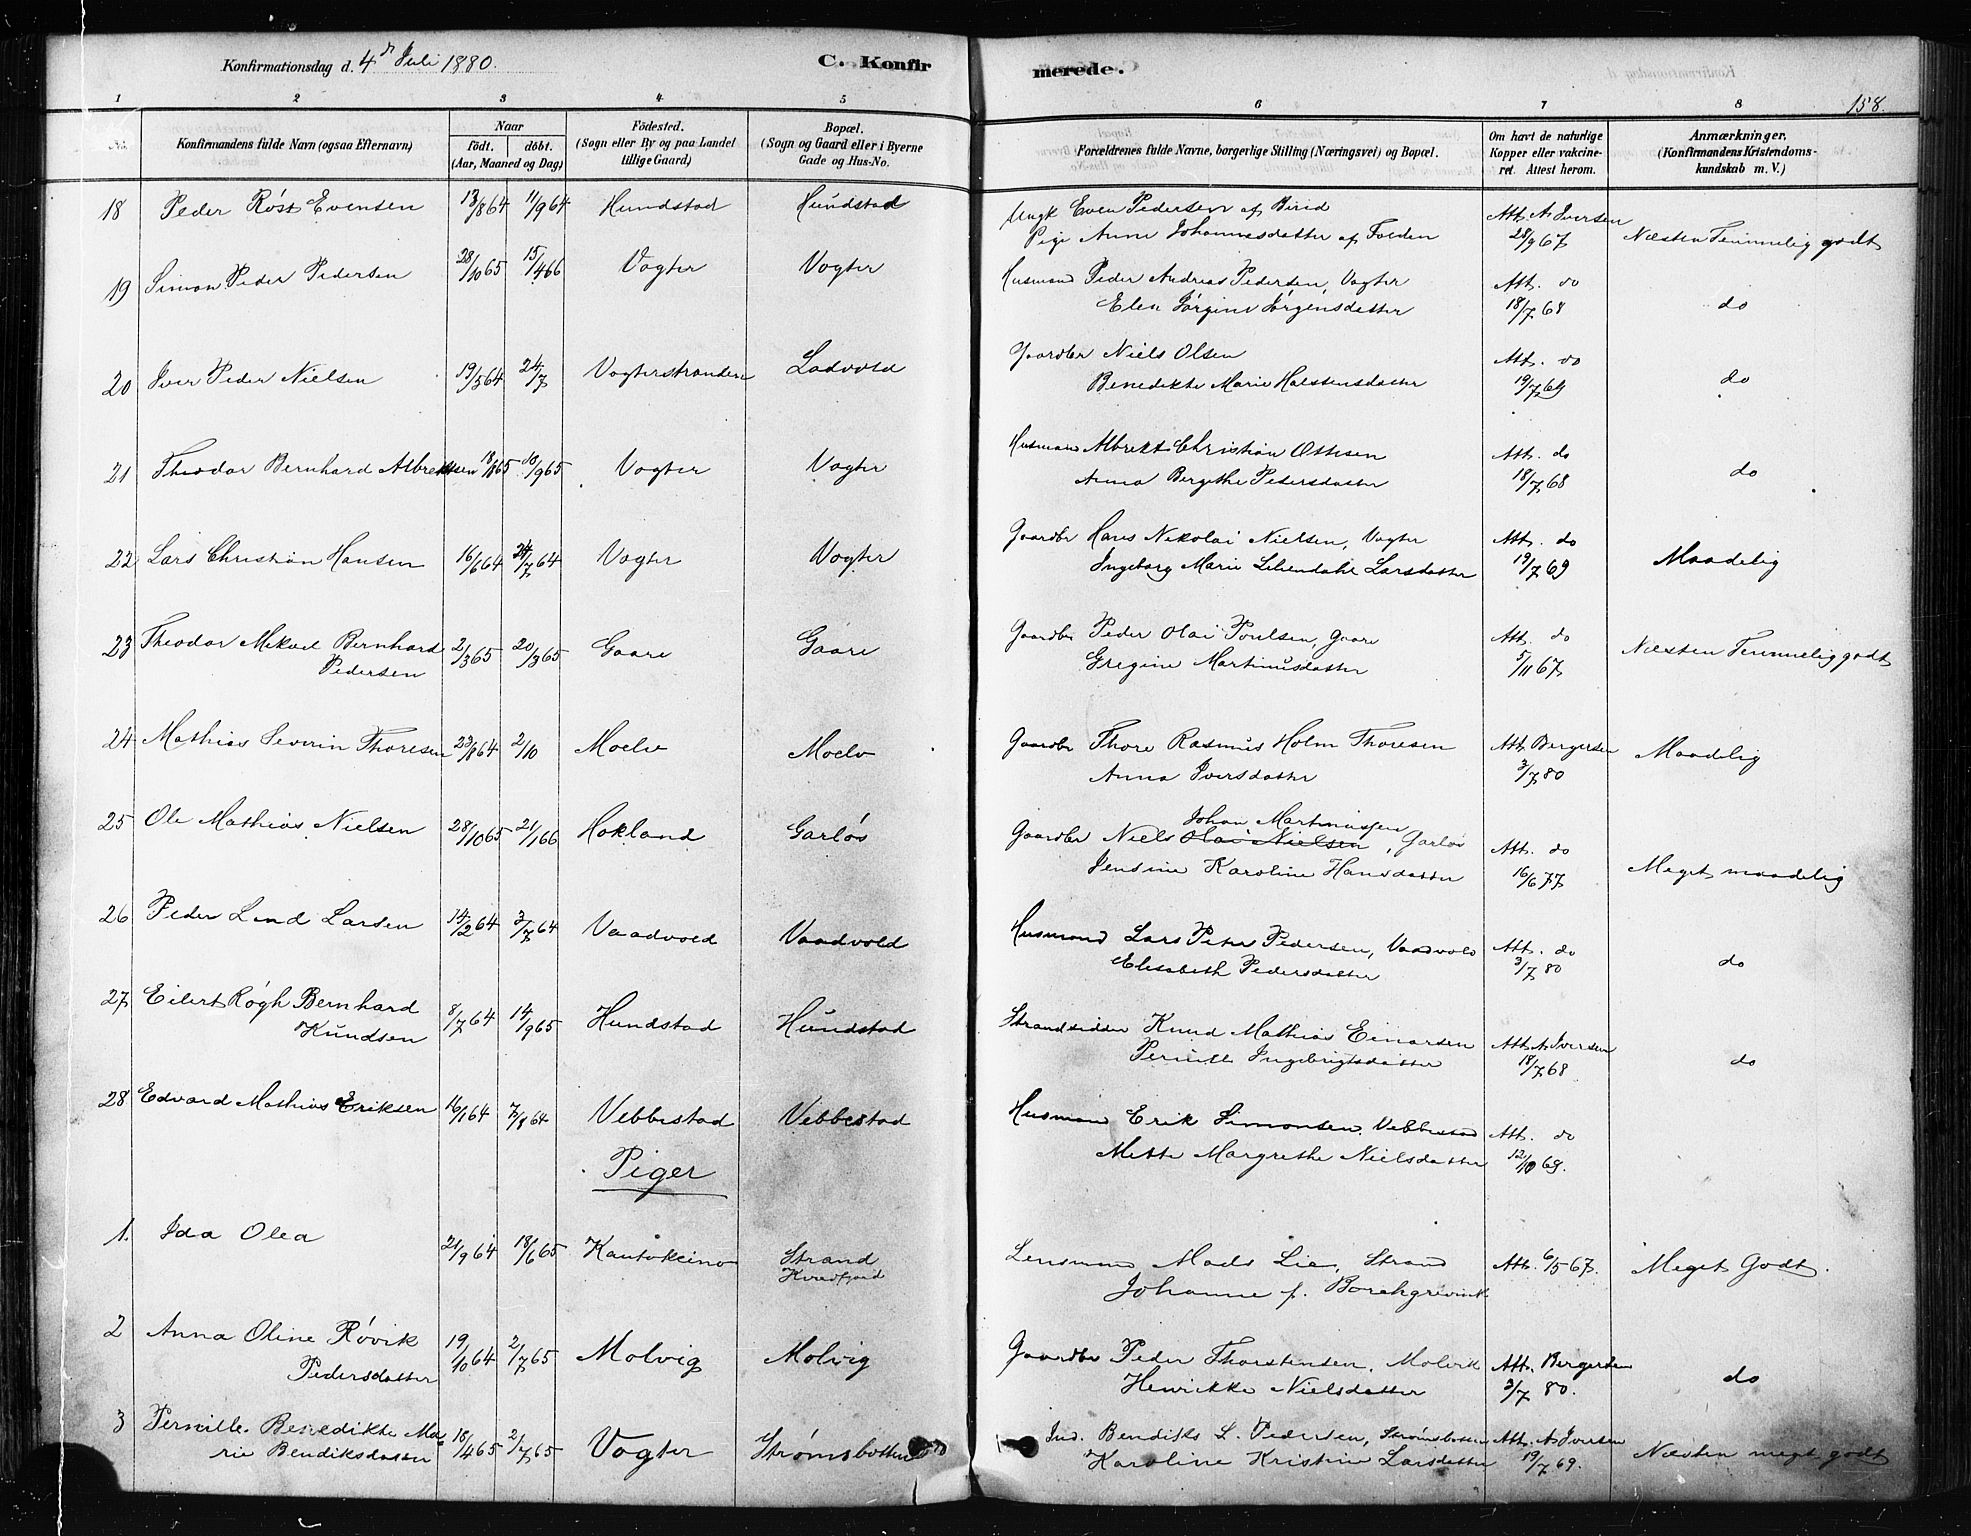 Konfirmationsdag d. 4de Juli 1880.
C. Konfir
merede.
158.
1 2 3 4 5 6 7 8
No. Konfirmandens fulde Navn (ogsaa Efternavn)
Naar
födt. döbt.
(Aar, Maaned og Dag)
Födested.
(Sogn eller By og paa Landet
tillige Gaard)
Bopæl.
(Sogn og Gaard eller i Byerne
Gade og Hus-No.
Forældrenes fulde Navne, borgerlige Stilling (Næringsvei) og Bopæl.
Om havt de naturlige
Kopper eller vakcine-
ret. Attest herom.
Anmærkninger.
(Konfirmandens Kristendoms-
kundskab m. V.)
18 Peder Röst Evensen 13/8 64 11/9 64 Hundstad Hundstad Ungk Even Pedersen af Birid Att. A. Iversen
Pige Anne Johannesdatter af Folden 28/9 67 Næsten Temmelig godt
19 Simon Peder Pedersen 28/10 65 15/4 66 Vogter Vogter Husmand Peder Andreas Pedersen, Vogter Att. do
Elen Jörgine Jörgensdatter 18/7 68 do
20 Iver Peder Nielsen 19/5 64 24/7 Vogterstranden Ladvold Gaardbr Niels Olsen Att. do
Benedikte Marie Halstensdatter 19/7 69 do
21 Theodor Bernhard Albrektsen 18/8 65 10/9 65 Vogter Vogter Husmand Albrekt Christian Ottesen Att. do
Anna Bergithe Pedersdatter 18/7 68 do
22 Lars Christian Hansen 16/6 64 24/7 64 Vogter Vogter Gaardbr Hans Nikolai Nielsen, Vogter Att. do
Ingeborg Marie Liliendahl Larsdatter 19/7 69 Maadelig
23 Theodor Mikael Bernhard 2/3 65 20/3 65 Gaare Gaare Gaardbr Peder Olai Poulsen, Gaare Att. do
Pedersen Gregine Martinusdatter 5/11 67 Næsten Temmelig godt
24 Mathias Severin Thoresen 23/8 64 2/10 Moelv Moelv Gaardbr Thore Rasmus Holm Thoresen Att. Bergersen Maadelig
Anna Iversdatter 3/7 80
25 Ole Mathias Nielsen 28/10 65 21/1 66 Hokland Garlös Johan Martinussen
Gaardbr Niels Olai Nielsen, Garlös Att. do
Jensine Karoline Hansdatter 16/6 77 Meget maadelig
26 Peder Lind Larsen 14/2 64 3/7 64 Vaadvold Vaadvold Husmand Lars Peter Pedersen, Vaadvold Att. do
Elisabeth Pedersdatter 3/7 80 do
27 Eilert Rögh Bernhard 8/7 64 14/9 65 Hundstad Hundstad Strandsidder Knud Mathias Einarsen Att. A. Iversen
Knudsen Pernille Ingebrigtsdatter 18/7 68 do
28 Edvard Mathias Eriksen 16/1 64 7/8 64 Vebbestad Vebbestad Husmand Erik Simonsen, Vebbestad Att. do
Mette Margrethe Nielsdatter 12/10 69.
Piger
1. Ida Olea 21/9 64 18/6 65 Kautokeino Strand Lensmand Mads Lie, Strand Att. 6/5 67. Meget Godt.
Kvædfjord Johanne f. Borchgrevink
2 Anna Oline Rövik 19/10 64 2/7 65 Molvig Molvig Gaardbr Peder Thorstensen, Molvik Att. Bergersen
Pedersdatter Henrikke Nielsdatter 3/7 80. do
3 Pernille Benedikte Ma- 18/4 65 2/7 65 Vogter Strömsbotten Ind. Bendiks L. Pedersen, Strömsbotten Att. A. Iversen
rie Bendiksdatter Karoline Kristine Larsdatter 19/7 69. Næsten meget godt